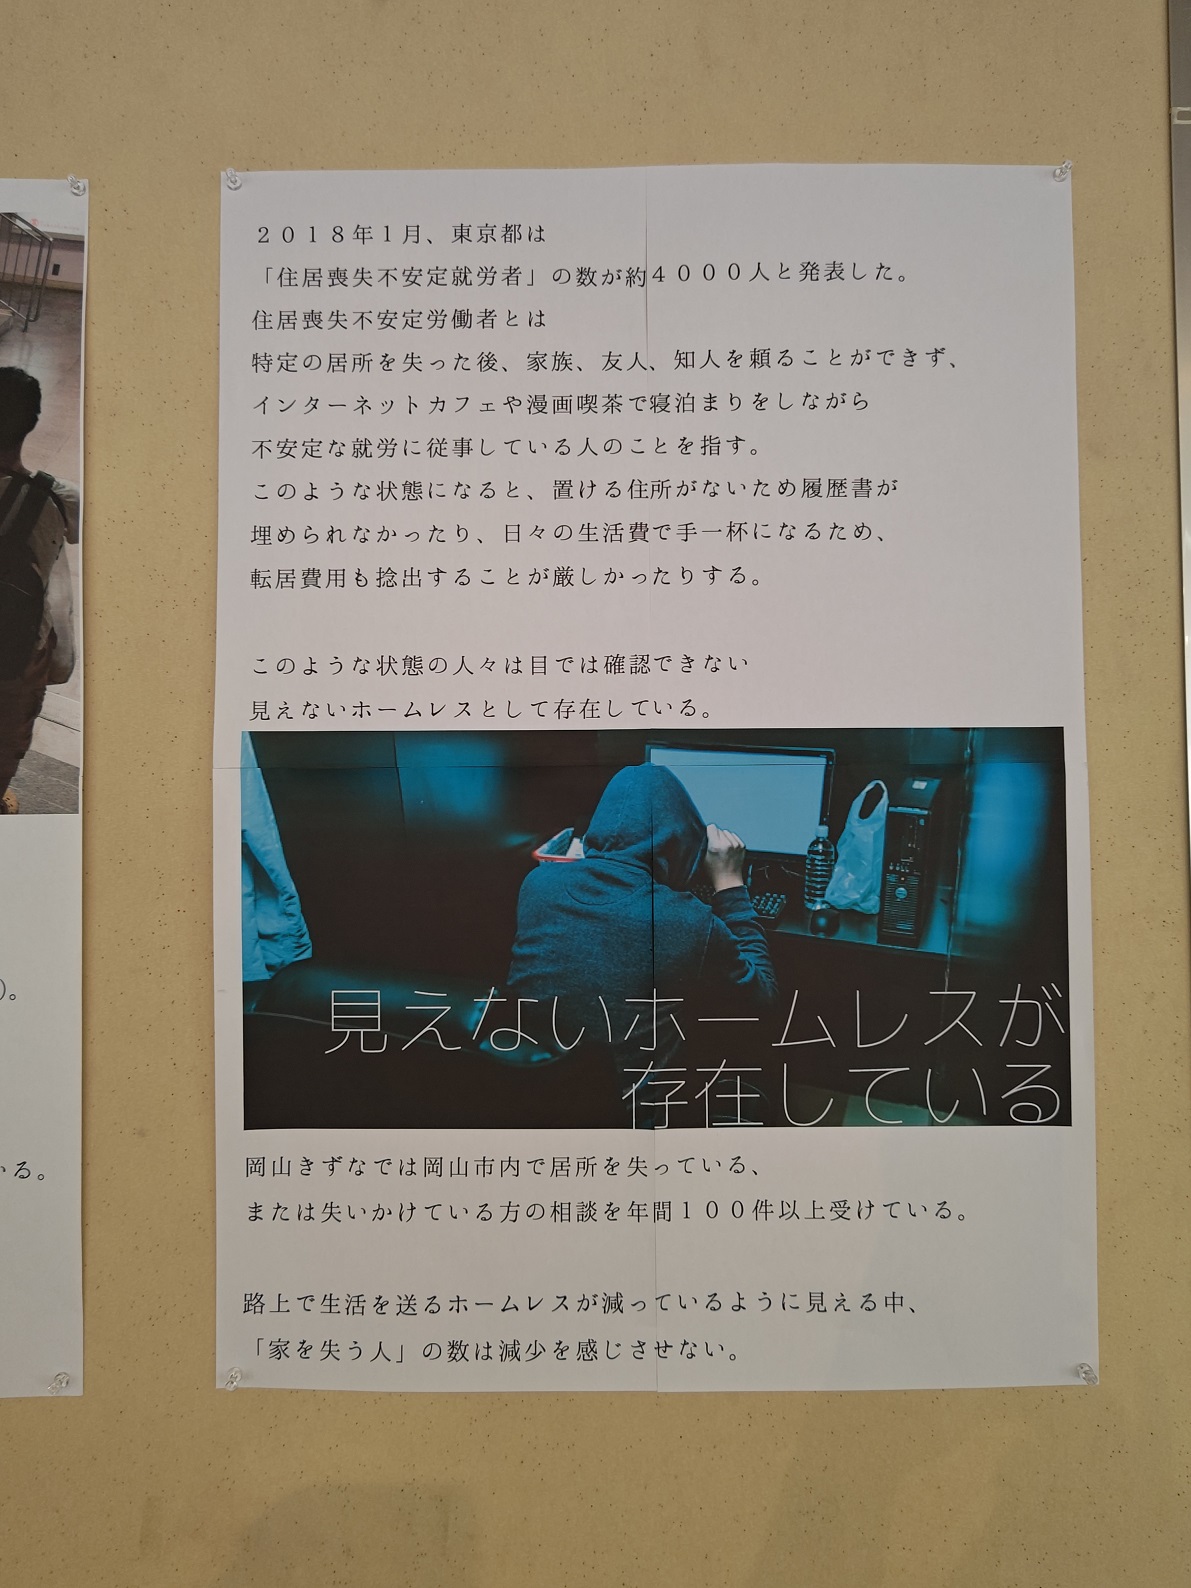 ２０１８年１月、東京都は
「住居喪失不安定就労者」の数が約４０００人と発表した。
住居喪失不安定労働者とは
特定の居所を失った後、家族、友人、知人を頼ることができず、
インターネットカフェや漫画喫茶で寝泊まりをしながら
不安定な就労に従事している人のことを指す。
このような状態になると、置ける住所がないため履歴書が
埋められなかったり、日々の生活費で手一杯になるため、
転居費用も捻出することが厳しかったりする。
このような状態の人々は目では確認できない
見えないホームレスとして存在している。
見えないホームレスが
存在している
岡山きずなでは岡山市内で居所を失っている、
または失いかけている方の相談を年間１００件以上受けている。
路上で生活を送るホームレスが減っているように見える中、
「家を失う人」の数は減少を感じさせない。
)。
いる。